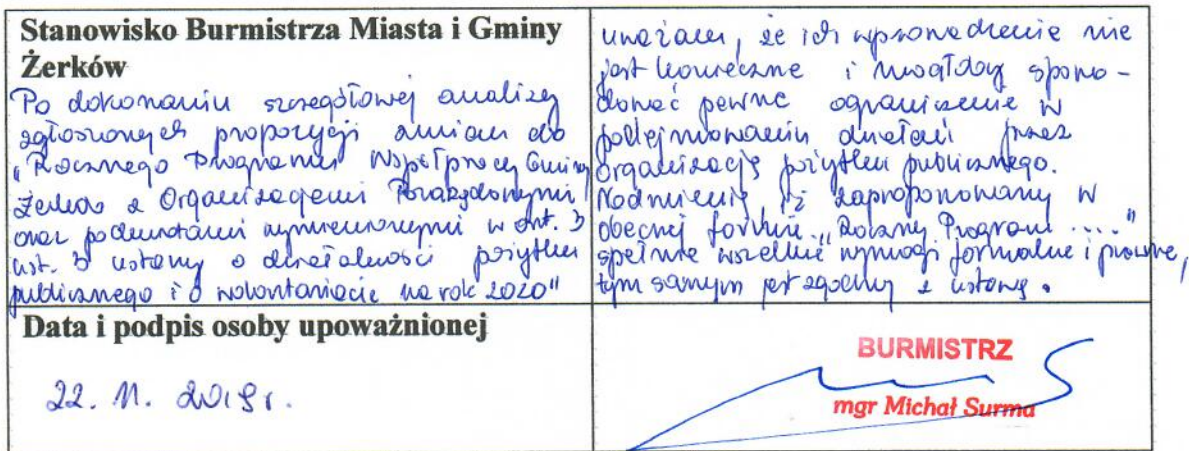 Stanowisko Burmistrza Miasta i Gminy
Żerków
Po dokonaniu szczegółowej analizy
zgłoszonych propozycji zmian do
„Rocznego Programu Współpracy Gminy
Żerków z Organizacjami Pozarządowymi
oraz podmiotami wymienionymi w art. 3
ust. 3 ustawy o działalności pożytku
publicznego i o wolontariacie na rok 2020"
uważam, że ich wprowadzenie nie
jest konieczne i mogłoby spowo-
dować pewne ograniczenie w
podejmowaniu działań przez
organizacje pożytku publicznego.
Nadmienię, iż zaproponowany w
obecnej formie „Roczny Program ...."
spełnia wszelkie wymogi formalne i prawne,
tym samym jest zgodny z ustawą.
Data i podpis osoby upoważnionej
22. 11. 2019r.
BURMISTRZ
mgr Michał Surma